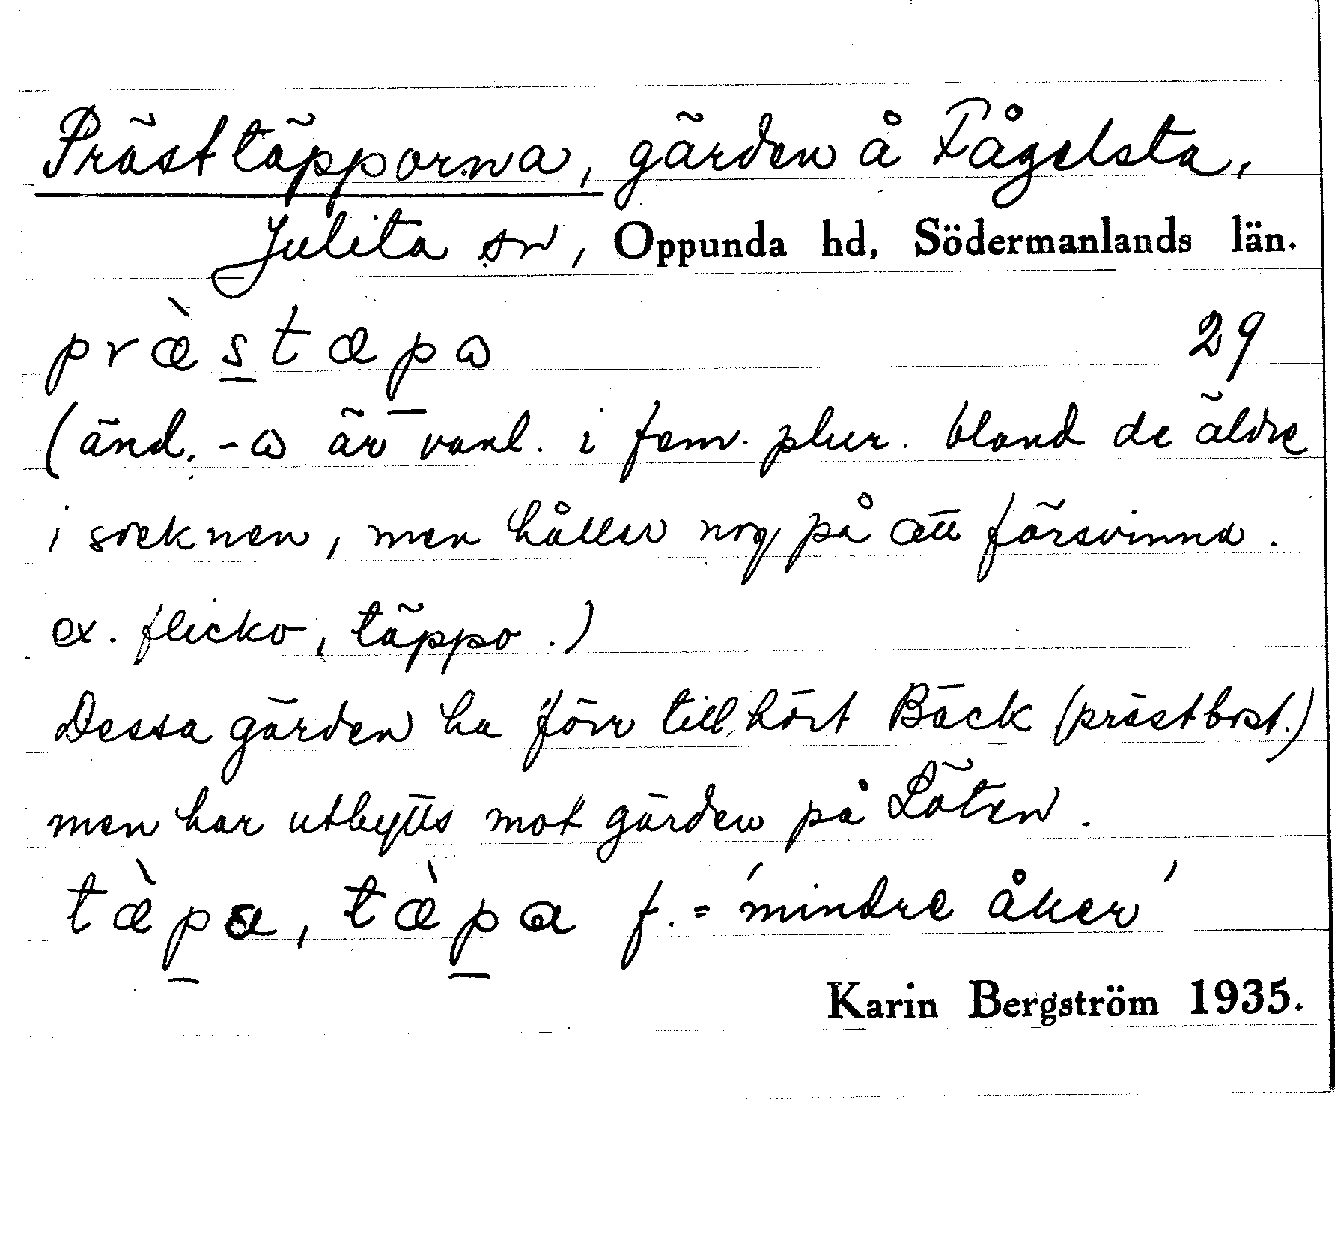 Prästtäpporna, gärden å Fågelsta,
Julita sn, Oppunda hd, Södermanlands län.
præ̀stæpω 29
(änd. -ω är vanl. i fem. plur. bland de äldre
i socknen, men håller nog på att försvinna.
ex. flicko, täppo.)
Dessa gärden ha förr tillhört Bäck (prästbost.)
men har utbytts mot gärden på Löten.
tæ̀pa, tæ̀pa f. = 'mindre åker'
Karin Bergström 1935.